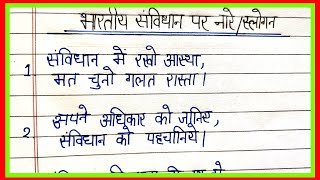 भारतीय संविधान पर नारे/स्लोगन
1. संविधान में रखो आस्था,
मत चुनो गलत रास्ता।
2. अपने अधिकार को जानिए,
संविधान को पहचानिये।